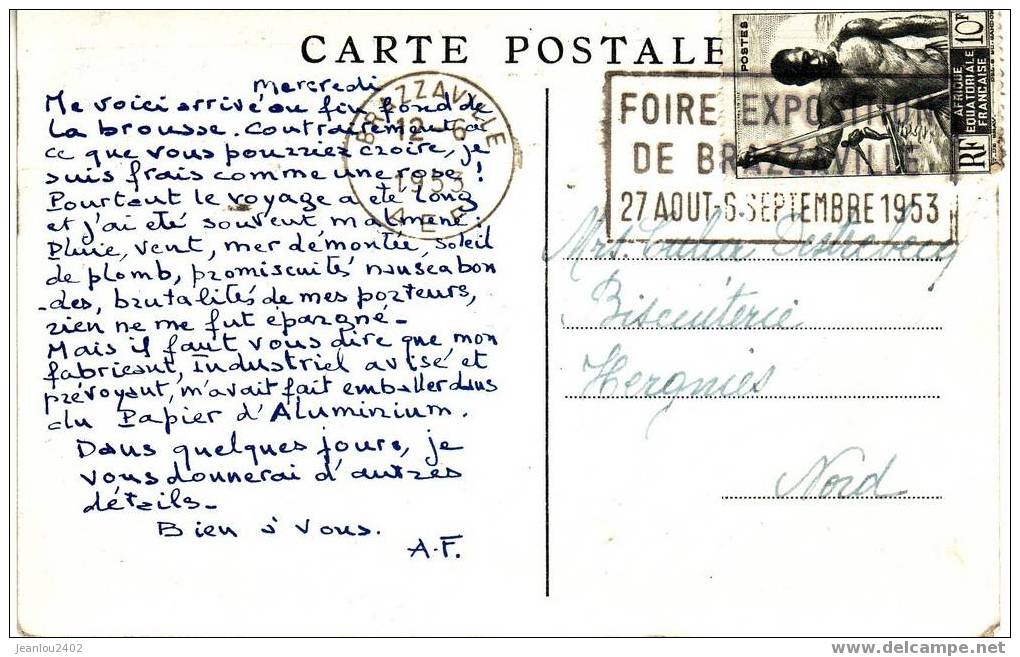 CARTE POSTALE
Mercredi
Me voici arrivé au fin fond de
la brousse. Contrairement à
ce que vous pourriez croire, je
suis frais comme une rose !
Pourtant le voyage a été long
et j'ai été souvent malmené :
Pluie, vent, mer démontée, soleil
de plomb, promiscuités nauséabon
-des, brutalités de mes porteurs,
rien ne me fut épargné -
Mais il faut vous dire que mon
fabricant, Industriel avisé et
prévoyant, m'avait fait emballer dans
du Papier d'Aluminium.
Dans quelques jours, je
vous donnerai d'autres
détails -
Bien à vous.
A.F.
BRAZZAVILLE
12-6
1953
A.E.F.
FOIRE EXPOSITION
DE BRAZZAVILLE
27 AOUT-6.SEPTEMBRE 1953
POSTES
10F
AFRIQUE
EQUATORIALE
FRANÇAISE
RF
Biscuiterie
Hergnies
Nord
jeanlou2402
www.delcampe.net